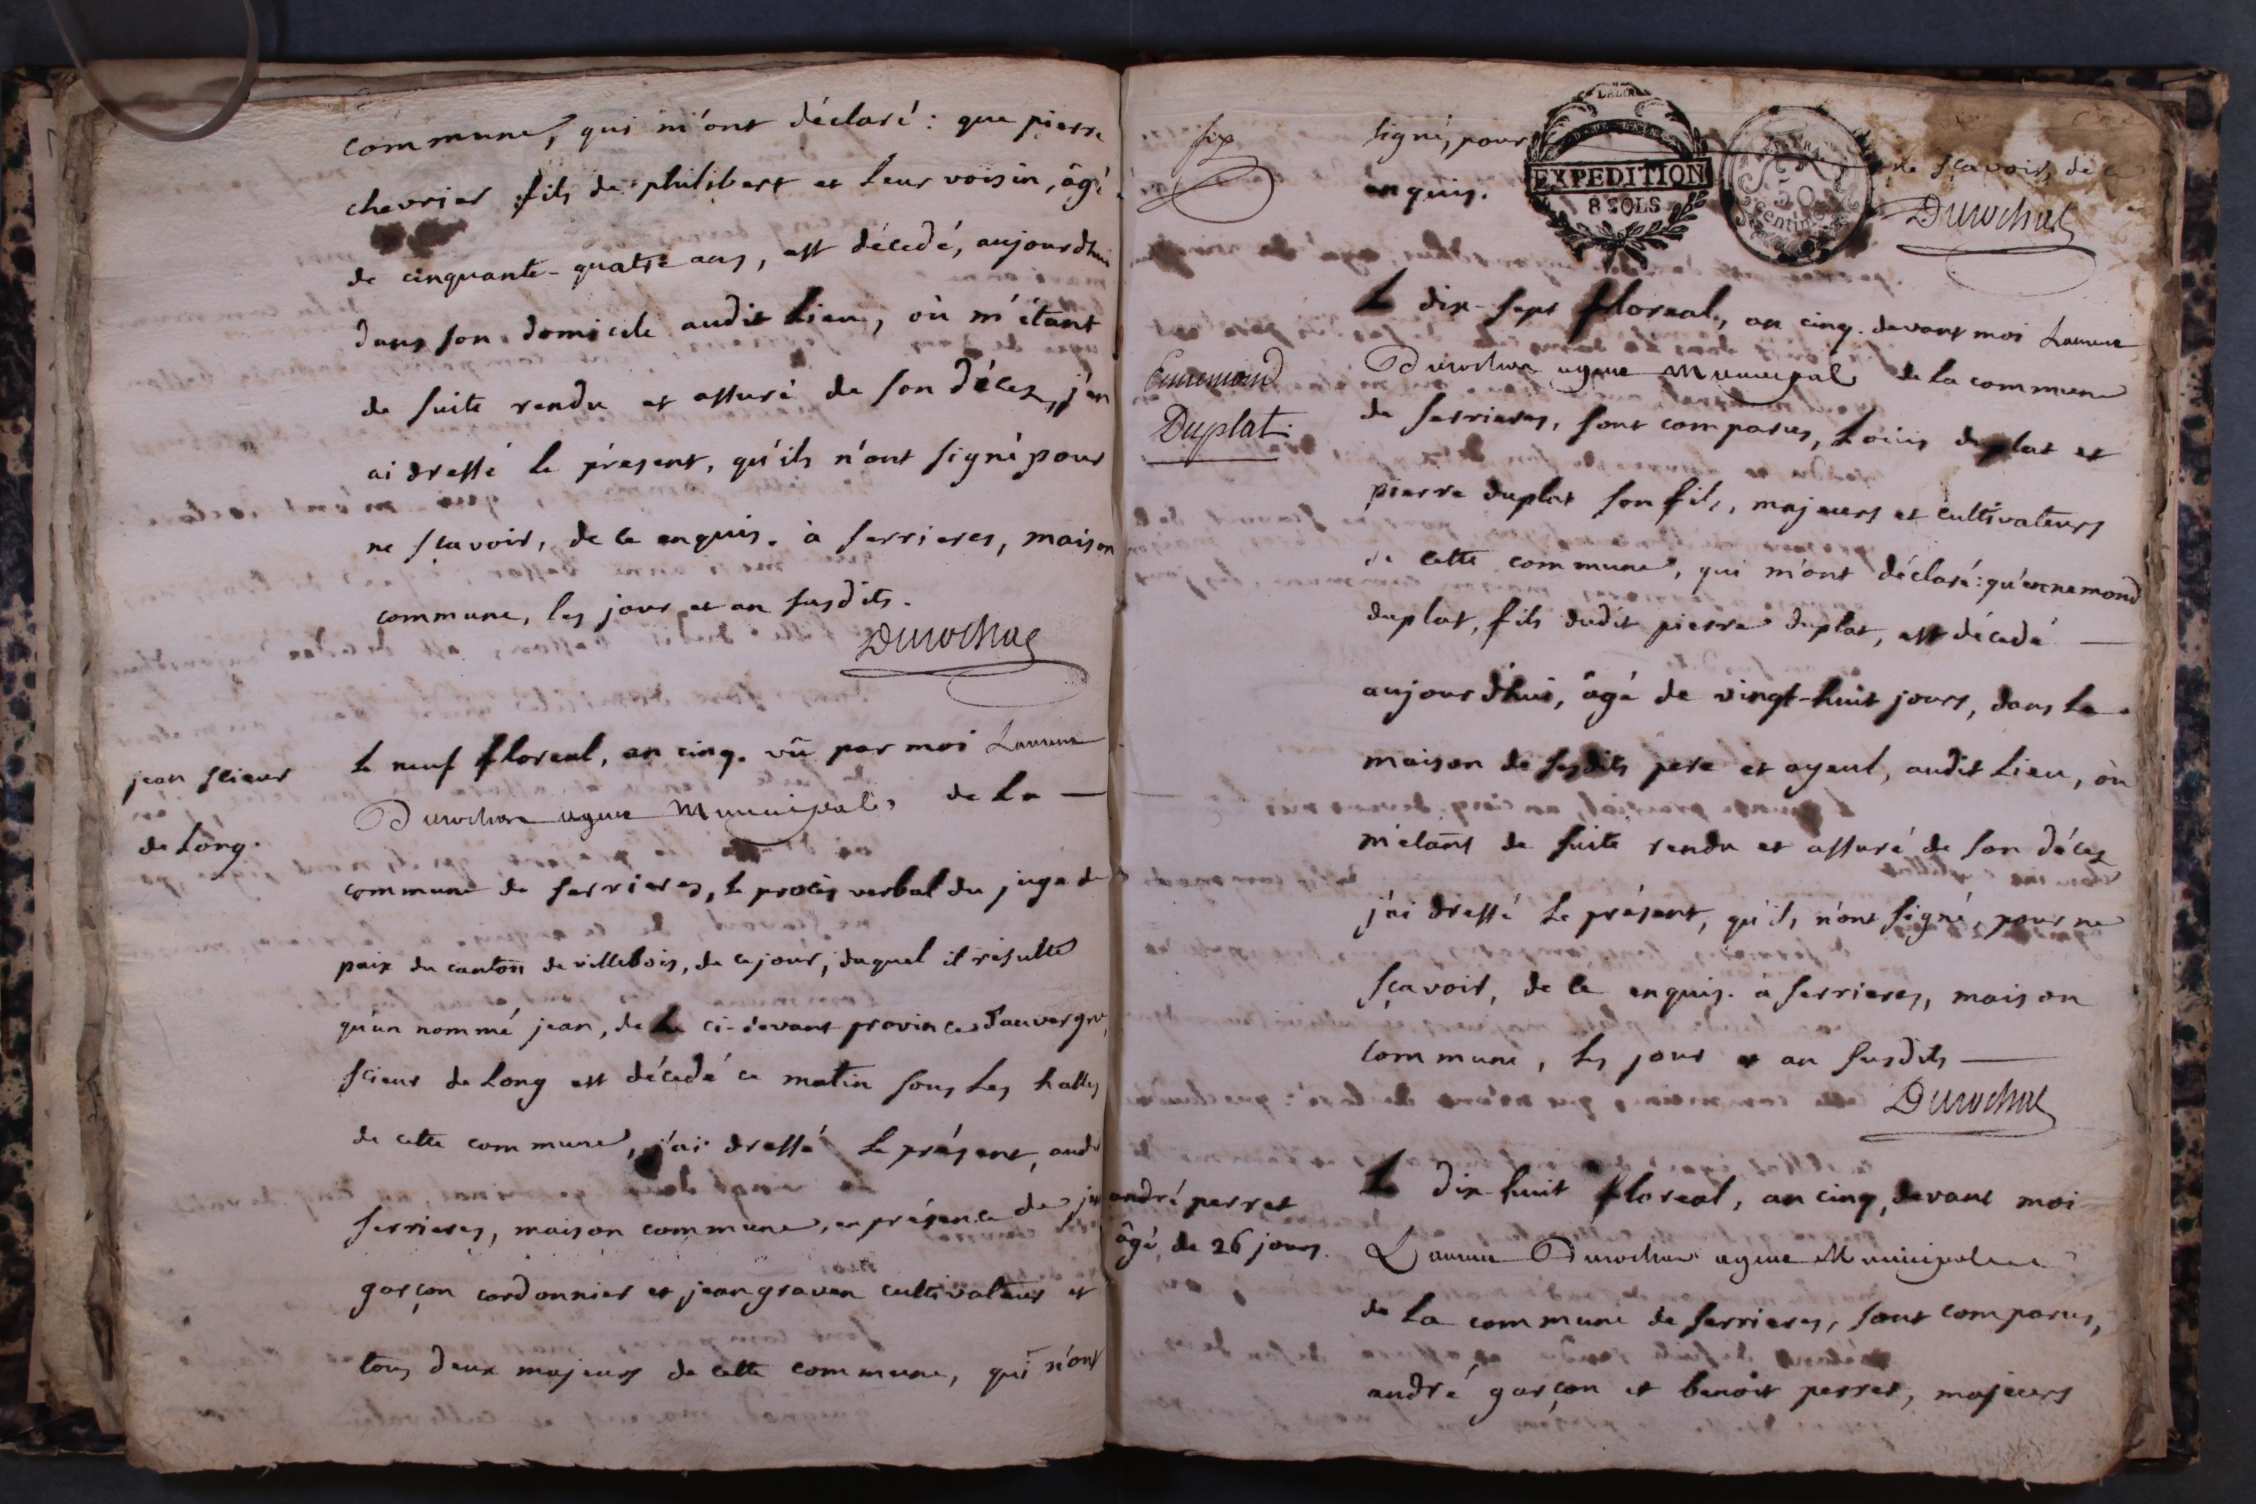 commune, qui m'ont déclaré : que pierre
chevrier fils de philibert et leur voisin, âgé
de cinquante-quatre ans, est décedé, aujourdhui
dans son domicile audit Lieu, où m'étant
de suite rendu et assuré de son décez, j'en
ai dressé le présent, qu'ils n'ont signé pour
ne sçavoir, de ce enquis. à serrieres, maison
commune, les jour et an susdits.
Durochat
jean scieur
de Long.
Le neuf floreal, an cinq. vû par moi Laurent
Durochat agent Municipal de La
commune de serrieres, le procès verbal du juge de
paix du canton de villebois, de ce jour, duquel il résulte
qu'un nommé jean, de La ci-devant province d'auvergne,
scieur de Long est décedé ce matin sous Les halles
de cette commune, j'ai dressé Le présent, audit
serrieres, maison commune, en présence de
garçon cordonnier et jean graven cultivateur et
tous deux majeurs de cette commune, qui n'ont
six
signé, pour ne sçavoir, de ce
enquis.
EXPEDITION
8 SOLS
50
centimes
Durochat
Ennemond
Duplat.
Le dix-sept floreal, an cinq. devant moi Laurent
Durochat agent Municipal de la commune
de serrieres, sont comparus, Loüis duplat et
pierre duplat son fils, majeurs et cultivateurs
de cette commune, qui m'ont déclaré : qu'ennemond
duplat, fils dudit pierre duplat, est décedé
aujourdhui, âgé de vingt-huit jours, dans La
maison de sesdits pere et ayeul, audit Lieu, où
m'étant de suite rendu et assuré de son décez
j'ai dressé Le présent, qu'ils n'ont signé, pour ne
sçavoir, de ce enquis. à serrieres, maison
commune, les jour et an susdits
Durochat
andré perret
âgé de 26 jours.
Le dix-huit floreal, an cinq, devant moi
Laurent Durochat agent Municipal
de La commune de serrieres, sont comparus,
andré garçon et benoit perret, majeurs